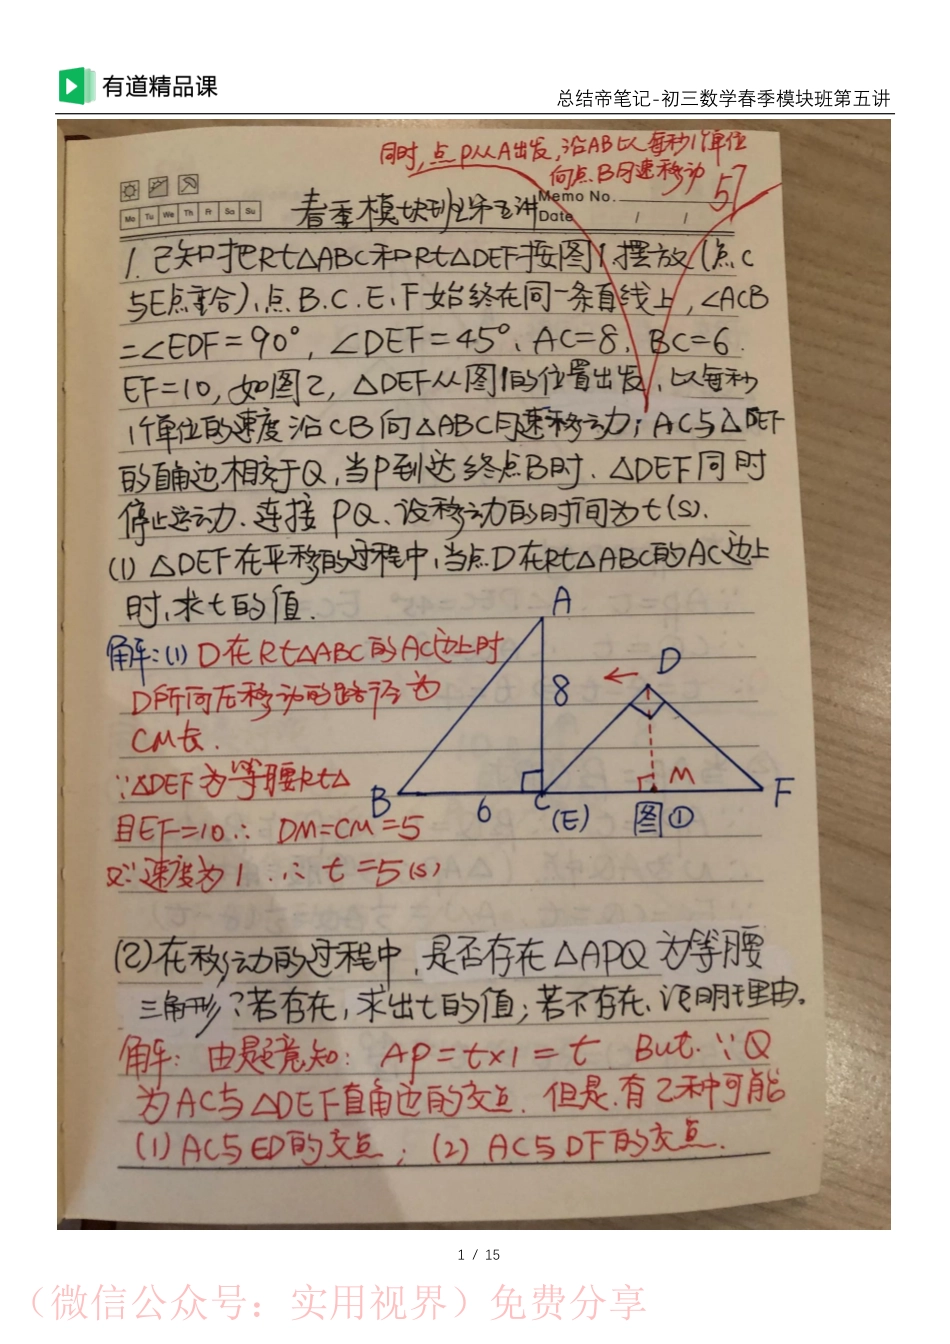 有道精品课
总结帝笔记-初三数学春季模块班第五讲
同时,点P从A出发,沿AB以每秒1个单位
向点B匀速移动
57
Memo No.
Mo Tu We Th Fr Sa Su
春季模块班第五讲
Date / /
1. 已知把Rt△ABC和Rt△DEF按图1摆放(点C
与E点重合),点B.C.E.F始终在同一条直线上,∠ACB
=∠EDF=90°,∠DEF=45°、AC=8、BC=6.
EF=10,如图2,△DEF从图1的位置出发,以每秒
1个单位的速度沿CB向△ABC匀速移动;AC与△DEF
的直角边相交于Q,当P到达终点B时.△DEF同时
停止运动.连接PQ、设移动的时间为t(s).
(1) △DEF在平移的过程中,当点D在Rt△ABC的AC边上
时,求t的值.
解:(1) D在Rt△ABC的AC边上时
D所向左移动的路径为
CM长.
∵△DEF为等腰Rt△
且EF=10 ∴ DM=CM=5
又∵速度为1 ∴ t=5(s)
A
8
D
M
B
6
C
(E)
F
图①
(2)在移动的过程中,是否存在△APQ为等腰
三角形?若存在,求出t的值;若不存在、说明理由。
解: 由题意知: AP=t×1=t But.∵Q
为AC与△DEF直角边的交点.但是.有2种可能
(1)AC与ED的交点;(2) AC与DF的交点.
1 / 15
(微信公众号：实用视界)免费分享